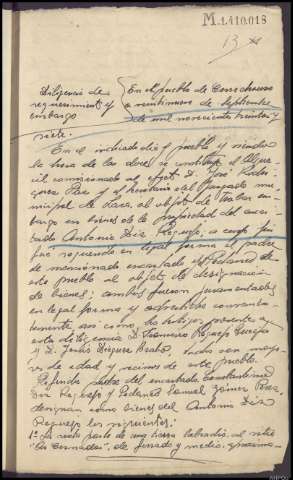 M-1.410.018
13
Diligencia de
requerimiento y
embargo
En el pueblo de
a veintinueve de Septiembre
de mil novecientos treinta y
siete.
En el indicado día y pueblo y siendo
la hora de las doce, se constituye el Algua-
cil comisionado al efecto D. José Rodri-
y el Secretario del Juzgado mu-
nicipal de Laza, al objeto de trabar em-
bargo en bienes de la propiedad del encar-
tado Antonio Diz Reguejo, a cuyo fin
fue requerido en legal forma el padre
de mencionado encartado y el Pedáneo de
este pueblo al objeto de designación
de bienes; ambos fueron juramentados
en legal forma y advertidos conveniente-
mente, así como los testigos presente a
esta diligencia D. Francisco Reguejo
y D. Jesús Diéguez Prado, todos son mayo-
res de edad y vecinos de este pueblo.
Referido padre del encartado Constantino
Diz Reguejo y Pedáneo Manuel
designan como bienes del Antonio Diz
Reguejo los siguientes:
1ª La sexta parte de una tierra labradío al sitio
de ferrado y medio,